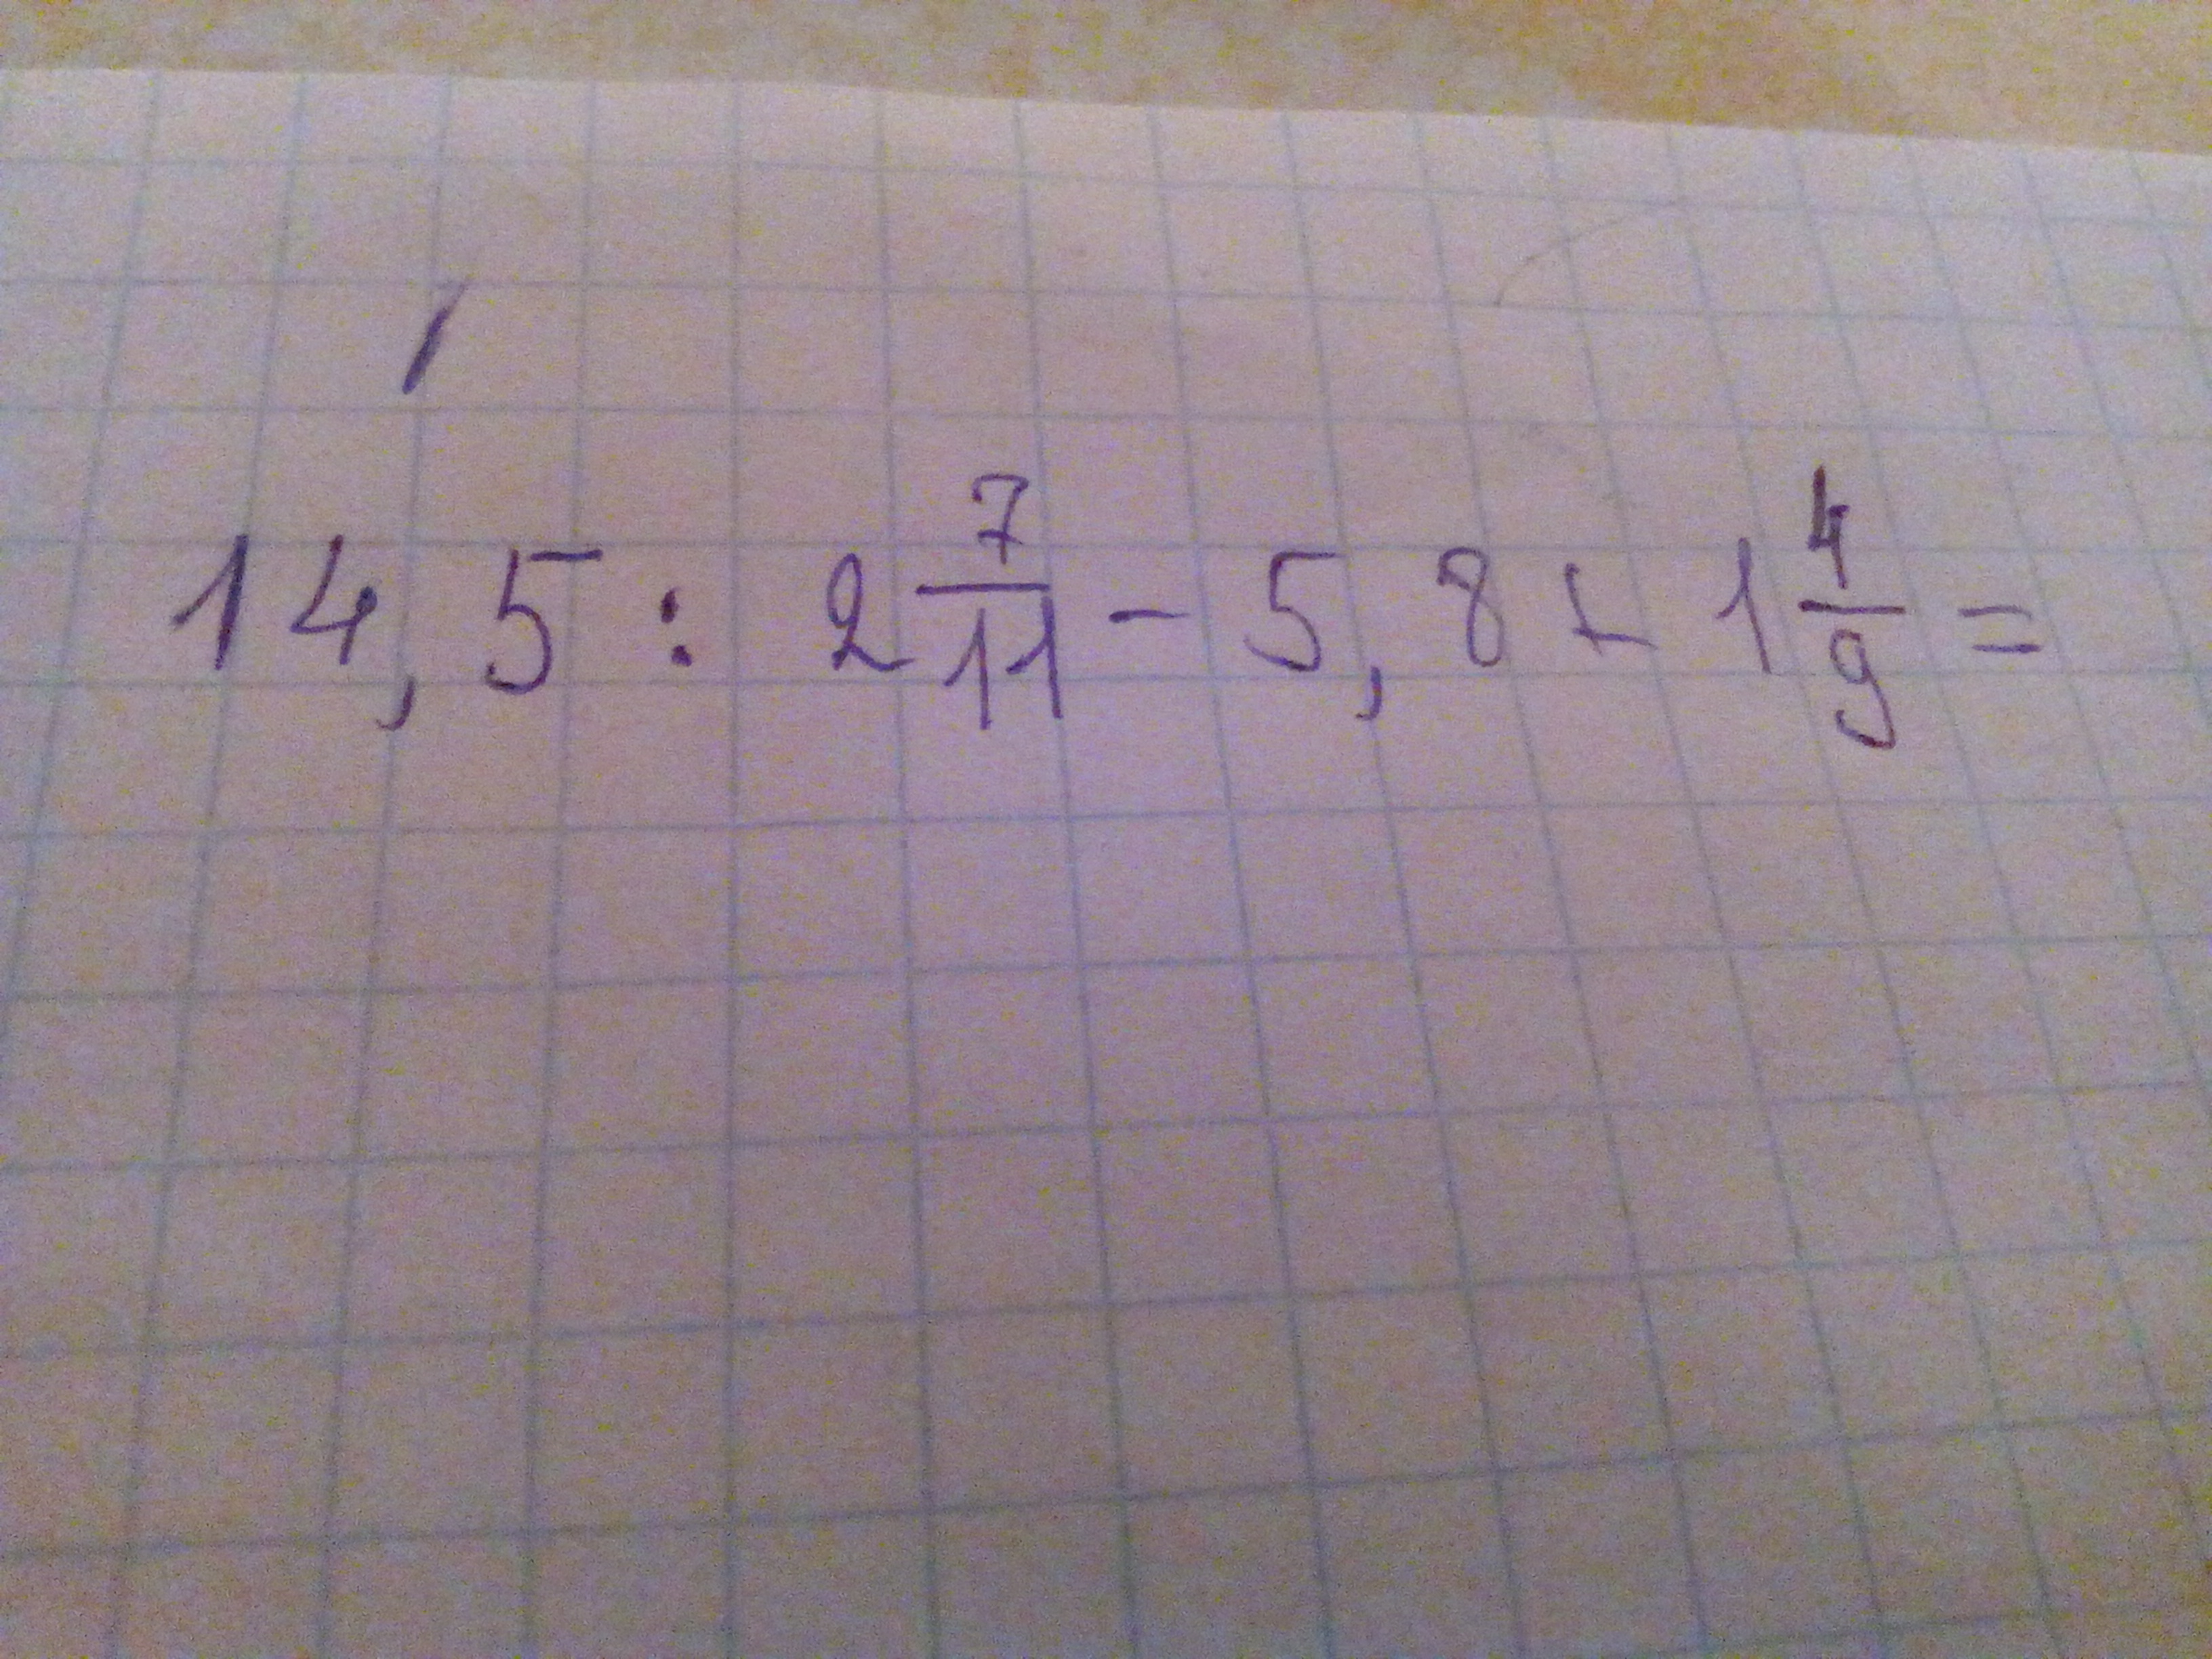 14,5 : 2 7/11 - 5,8 + 1 4/9 =